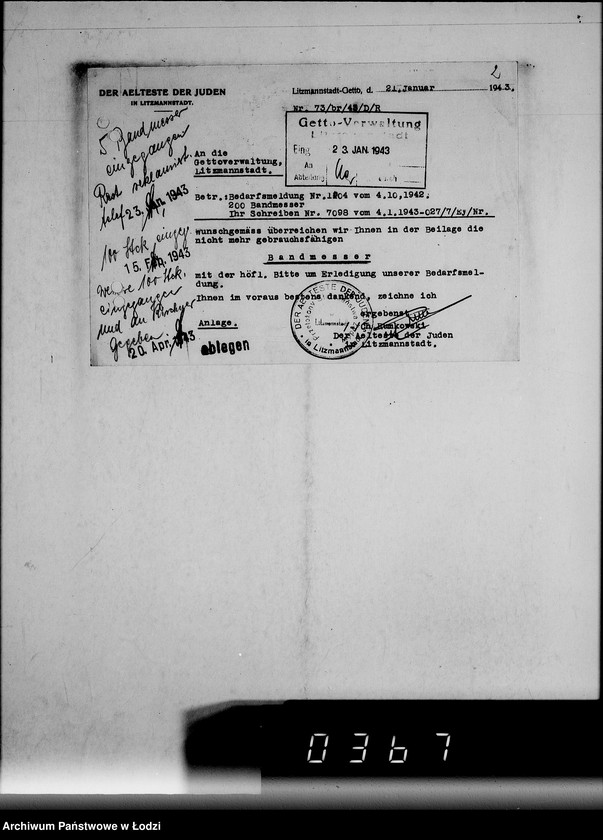 2
DER AELTESTE DER JUDEN
IN LITZMANNSTADT.
Litzmannstadt-Getto, d. 21.Januar 1943.
Nr. 73/br/43/D/R
Getto-Verwaltung
Litzmannstadt
Eing 23. JAN. 1943
An
Abteilung
An die
Gettoverwaltung,
Litzmannstadt.
Betr.:Bedarfsmeldung Nr.1204 vom 4.10.1942.
200 Bandmesser
Ihr Schreiben Nr. 7098 vom 4.1.1943-027/7/Ej/Nr.
Wunschgemäss überreichen wir Ihnen in der Beilage die
nicht mehr gebrauchsfähigen
Bandmesser
mit der höfl. Bitte um Erledigung unserer Bedarfsmel-
dung.
Ihnen im voraus bestens dankend, zeichne ich
ergebenst
Anlage.
/-/Ch.Rumkowski
Der Aelteste der Juden
in Litzmannstadt.
DER AELTESTE DER JUDEN
in Litzmannstadt
5 Bandmesser
eingegangen
Rest reklamiert.
23. Jan. 1943
100 Stck. eingeg.
15. Feb. 1943
100 Stck.
eingegangen
und an
gegeben.
20. Apr. 1943
ablegen
0367
Archiwum Państwowe w Łodzi